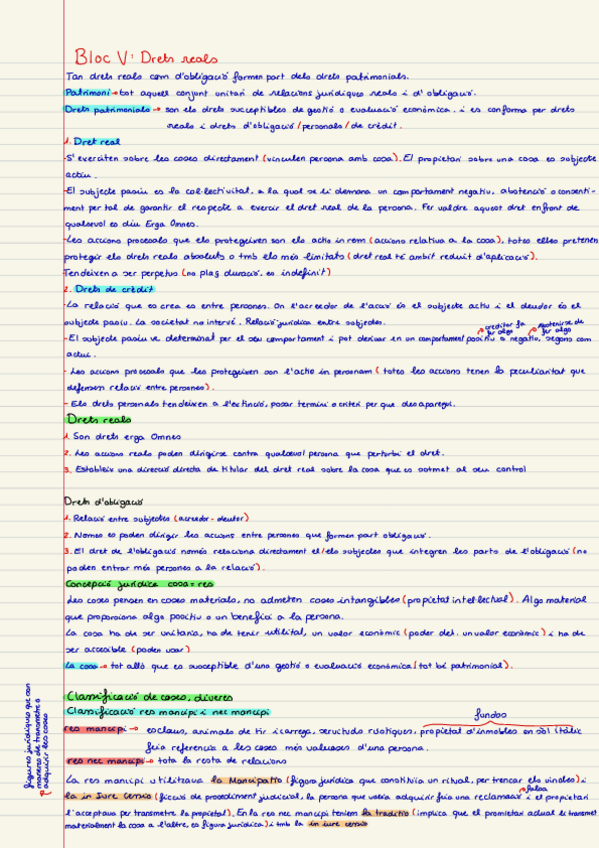 Bloc V: Drets reals
Tan drets reals com d'obligació formen part dels drets patrimonials.
Patrimoni → tot aquell conjunt unitari de relacions jurídiques reals i d'obligació.
Drets patrimonials → son els drets susceptibles de gestió o evaluació económica. i es conforma per drets
reals i drets d'obligació/personals/de crèdit.
1. Dret real
-S'exerciten sobre les coses directament (vinculen persona amb cosa). El propietari sobre una cosa es subjecte
actiu.
-El subjecte pasiu es la col·lectivitat, a la qual se li demana un comportament negatiu, abstenció o consenti-
ment per tal de garantir el respecte a exercir el dret real de la persona. Fer valdre aquest dret enfront de
qualsevol es diu Erga Omnes.
-Les accions procesals que els protegeixen son els actio in rem (accions relativa a la cosa), totes elles pretenen
protegir els drets reals absoluts o tmb els més limitats (dret real té ambit reduit d'aplicació).
Tendeixen a ser perpetus (no plaç duració. es indefinit)
2. Drets de crèdit
-La relació que es crea es entre persones. On l'acreedor de l'acció és el subjecte actiu i el deudor és el
subjecte pasiu. La societat no intervé. Relació jurídica entre subjectes.
creditor fa algo
abstenirse de fer algo
-El subjecte pasiu ve determinat per el seu comportament i pot derivar en un comportament positiu o negatiu, segons com
actui.
- Les accions procesals que les protegeixen son l'actio in personam (totes les accions tenen la peculiaritat que
defensen relació entre persones).
- Els drets personals tendeixen a l'extinció, posar termini o criteri per que desaparegui.
Drets reals
1. Son drets erga Omnes
2. Les accions reals poden dirigirse contra qualsevol persona que pertorbi el dret.
3. Estableix una direcció directa de titular del dret real sobre la cosa que es sotmet al seu control
Drets d'obligació
1. Relació entre subjectes (acreedor - deutor)
2. Nomes es poden dirigir les accions entre persones que formen part obligació.
3. El dret de l'obligació només relaciona directament el/els subjectes que integren les parts de l'obligació (no
poden entrar més persones a la relació).
Concepció jurídica cosa = res
Les coses pensen en coses materials, no admeten coses intangibles (propietat intel·lectual). Algo material
que proporciona algo positiu o un benefici a la persona.
La cosa ha de ser unitaria, ha de tenir utilitat, un valor econòmic (poder det. un valor econòmic) i ha de
ser accesible (poden usar)
La cosa → tot allò que es susceptible d'una gestió o evaluació econòmica (tot bé patrimonial).
Classificació de coses, diverses
Classificació res mancipi i nec mancipi
fundos
res mancipi → esclaus, animals de tir i carrega, servituds rustiques, propietat d'inmobles en sol itàlic
feia referencia a les coses més valuoses d'una persona.
res nec mancipi → tota la resta de relacions
figures jurídiques que son
maneres de transmetre o
adquirir les coses
La res mancipi utilitzava la Mancipatio (figura jurídica que constituia un ritual, per trencar els vincles) i
falsa
la in Iure Cessio (ficció de procediment judicial, la persona que volia adquirir feia una reclamació i el propietari
l'acceptava per transmetre la propietat). En la res nec mancipi teniem la traditio (implica que el propietari actual li transmet
materialment la cosa a l'altre, es figura jurídica) i tmb la in iure cessio